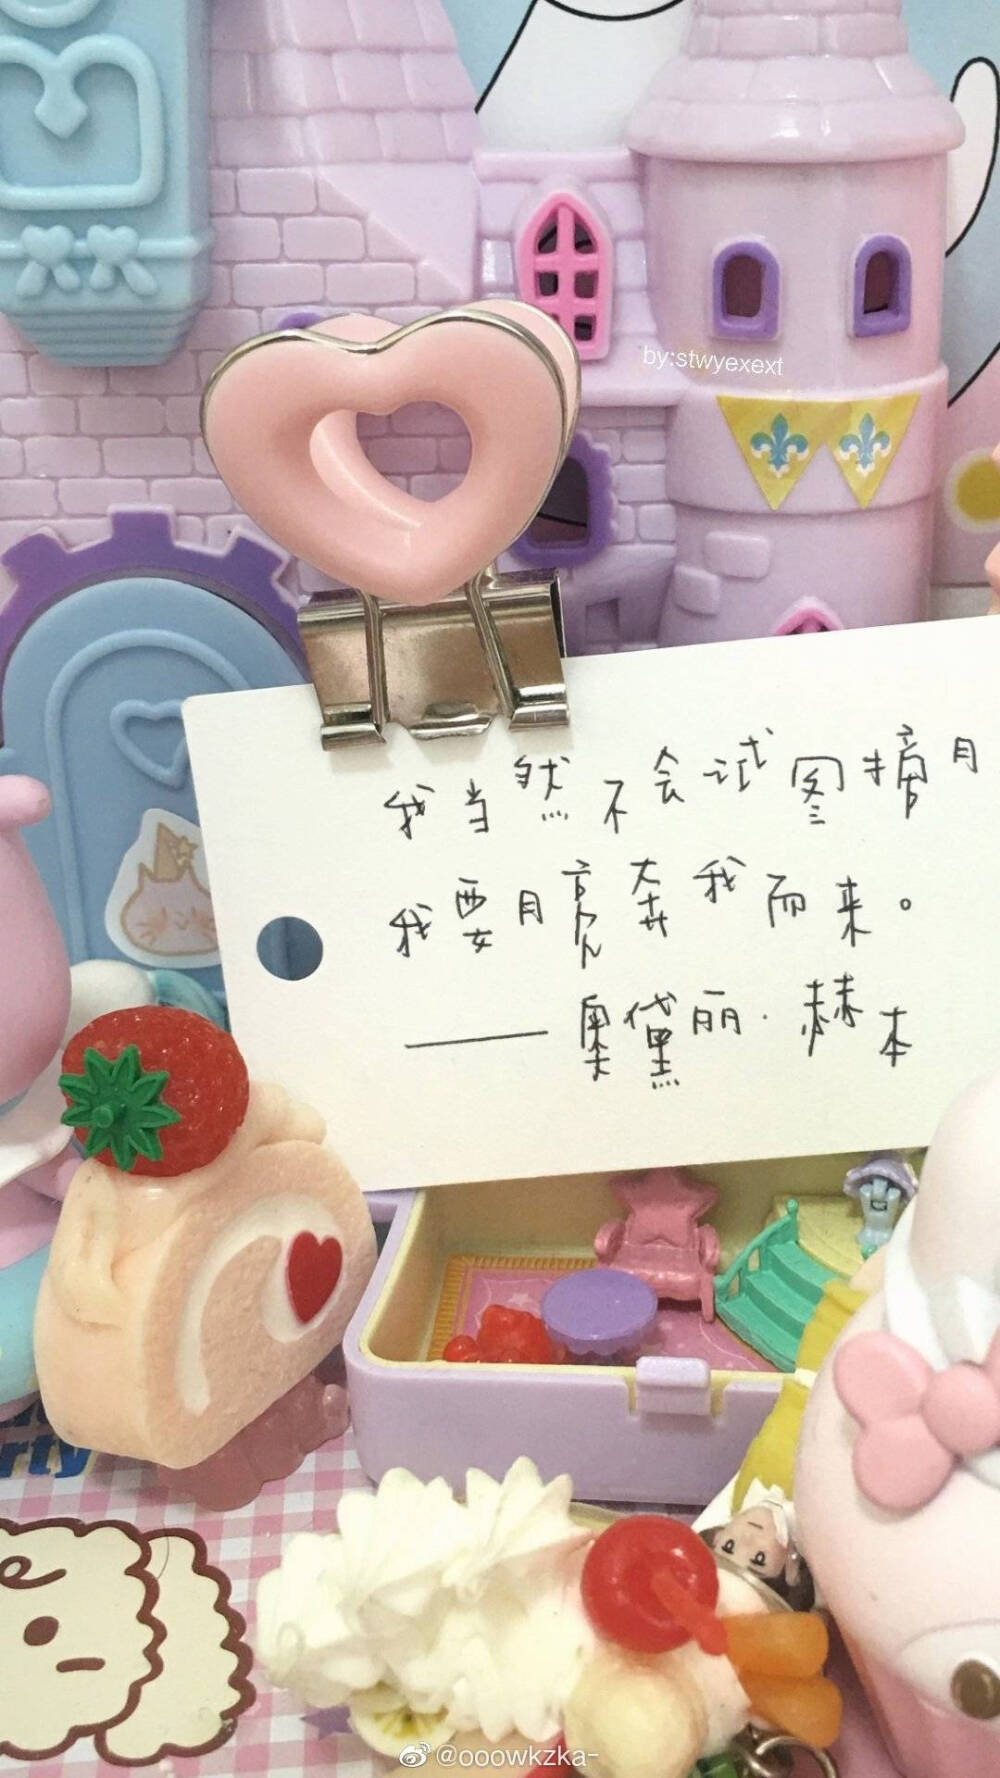 by:stwyexext
我当然不会试图摘月
我要月亮奔我而来。
——奥黛丽·赫本
rty
@ooowkzka-